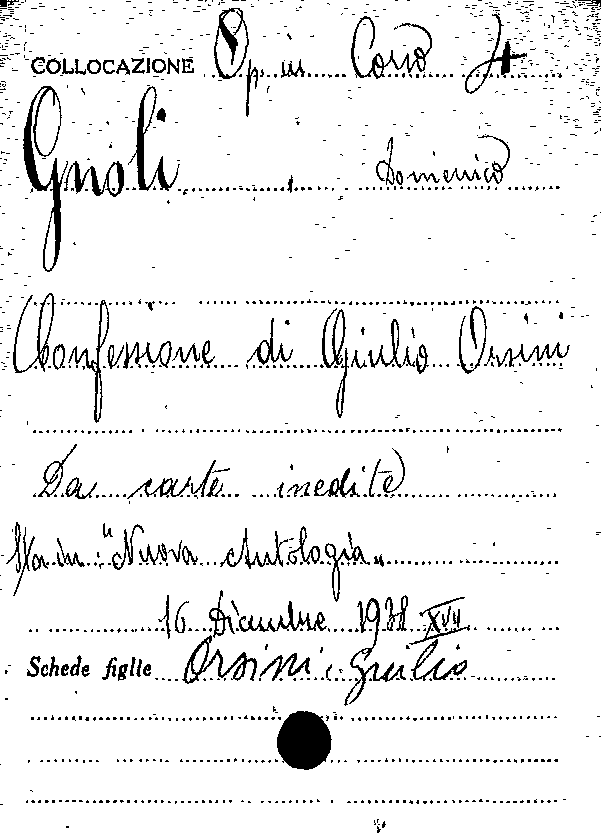 COLLOCAZIONE Op. in Corso 4
Gnoli Domenico
Confessione di Giulio Orsini
Da carte inedite
Sta in: "Nuova Antologia„
16 Dicembre 1938 XVII
Schede figlie Orsini Giulio